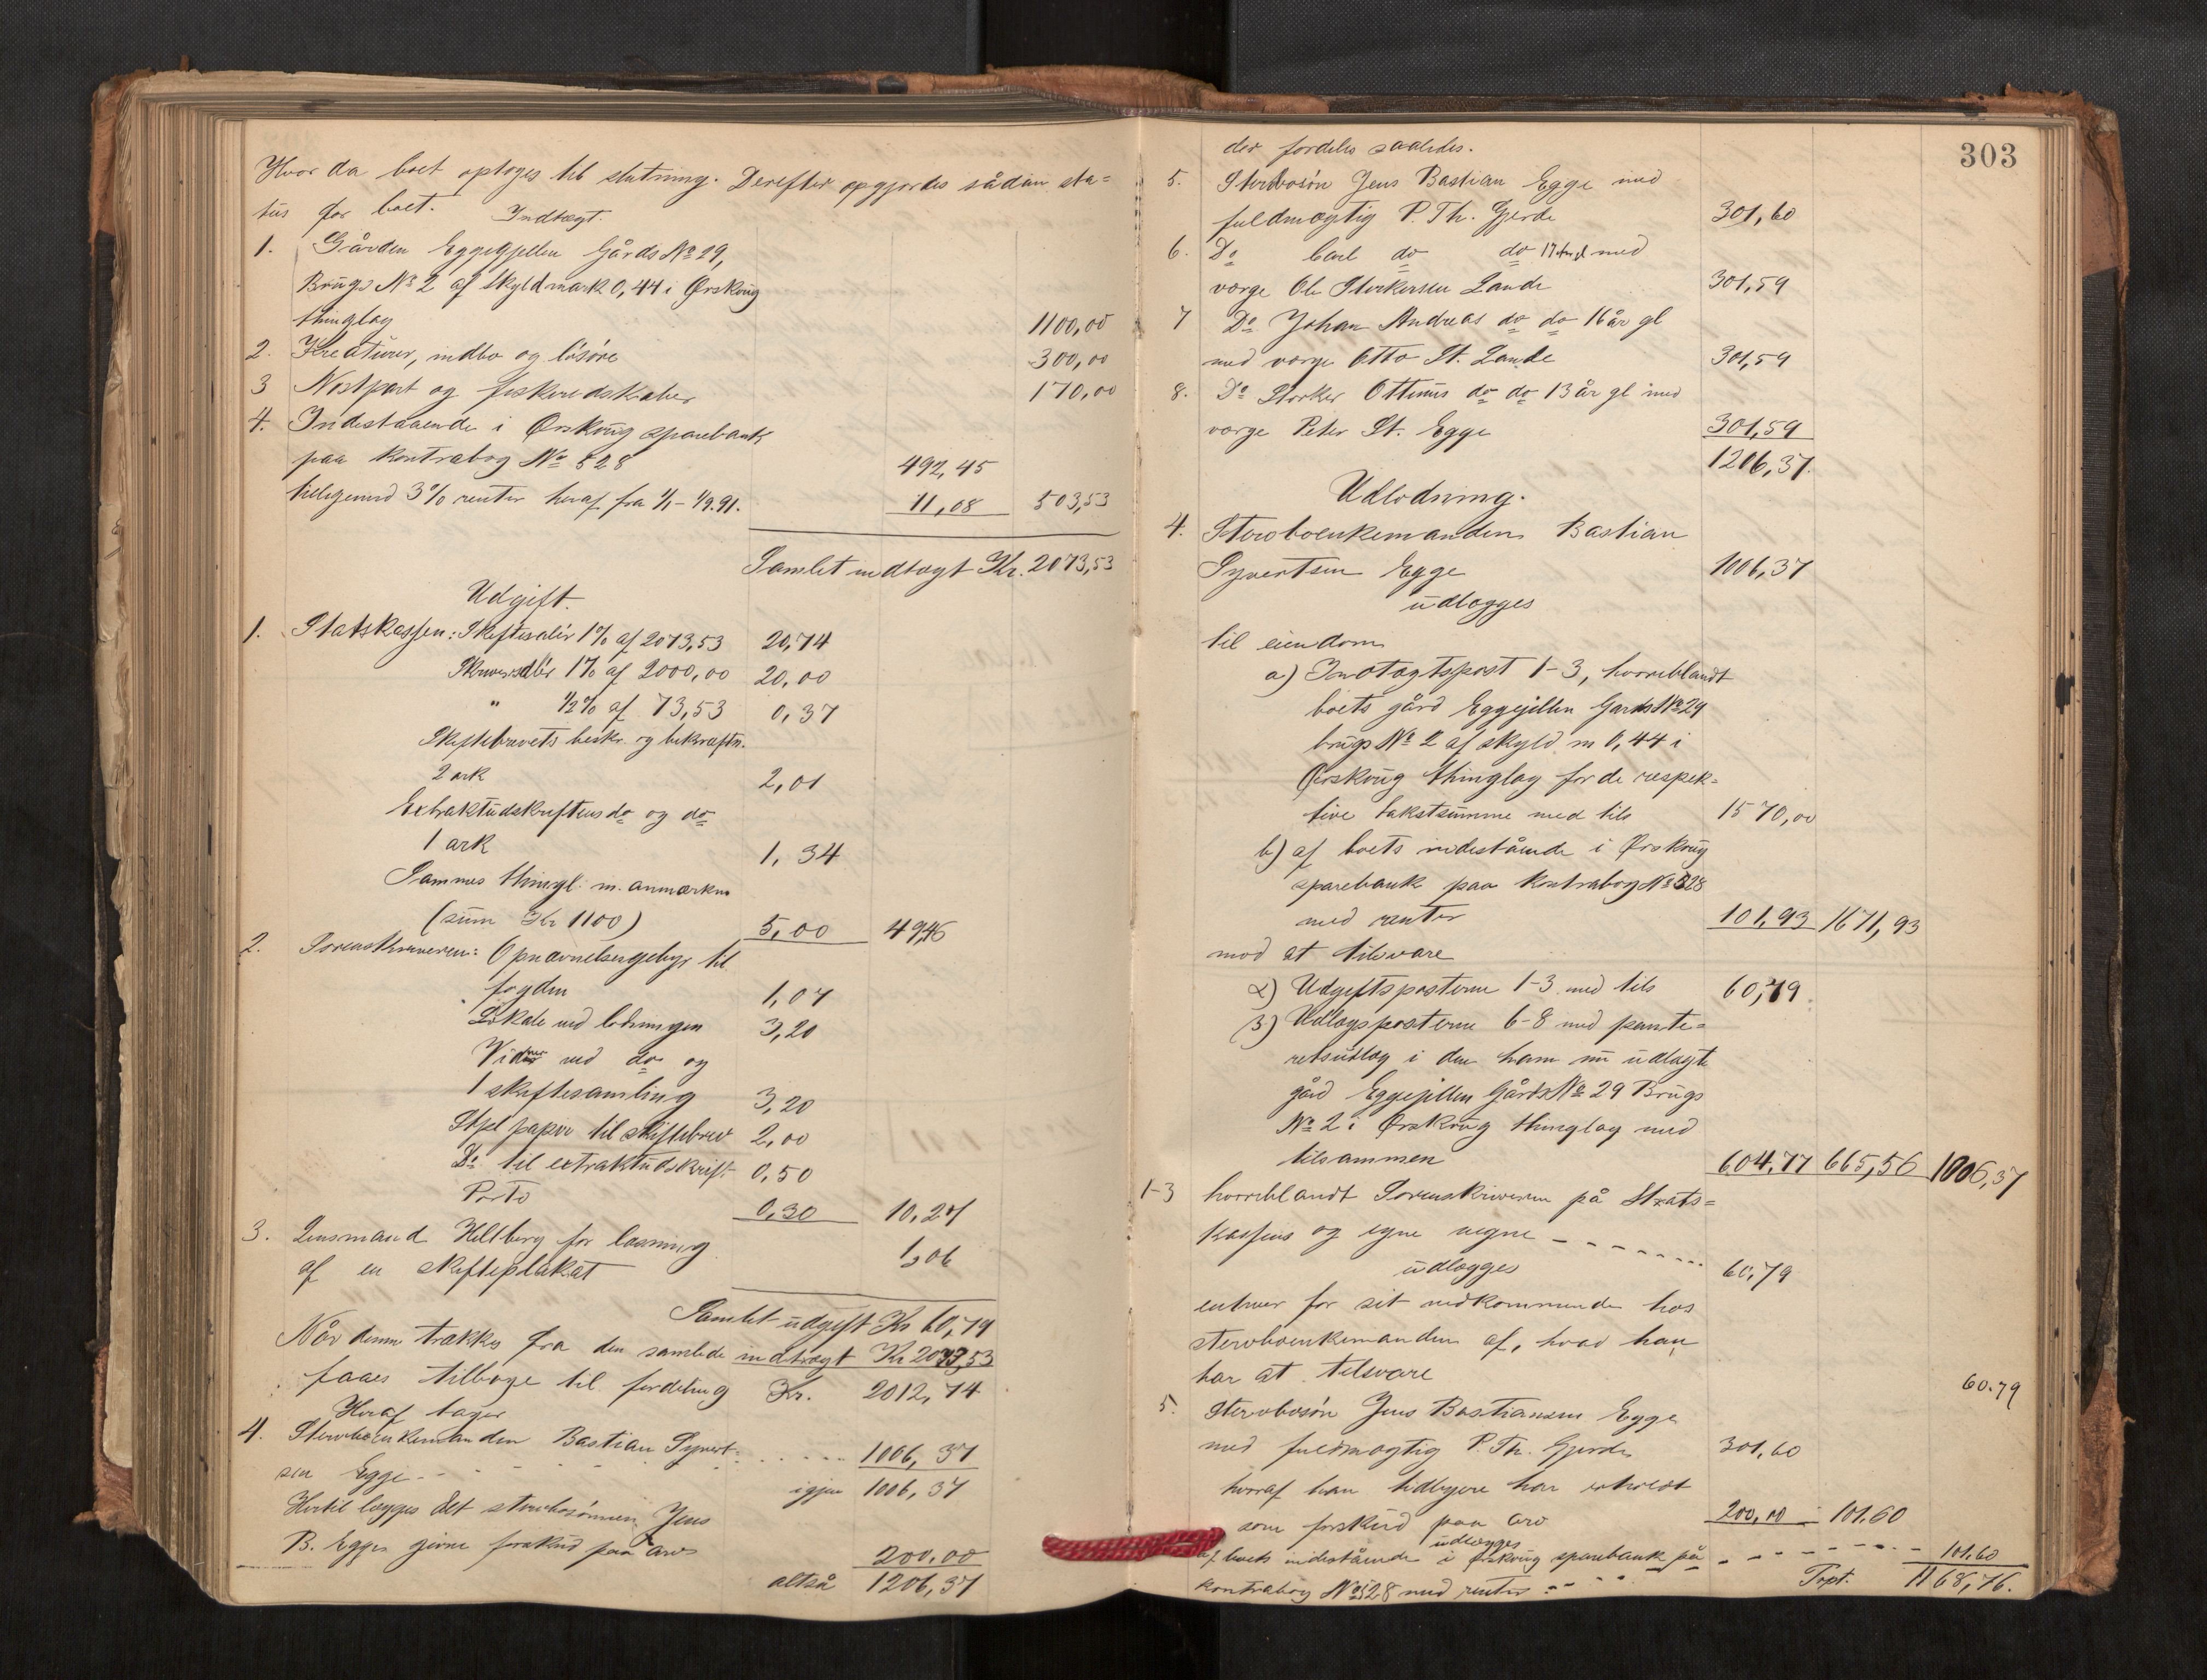 Hvor da boet optoges til slutning. Derefter opgjordes sådan sta=
tus for boet.
Indtægt.
1. Gården Eggegjellen Gårds No 29,
Brugs No 2 af Skyldmark 0,44 i Ørskoug
thinglag 1100,00
2. Kreaturer, indbo og løsøre 300,00
3 Nostpart og fiskeredskaber 170,00
4. Indestaaende i Ørskoug sparebank
paa kontrabog No 528 492,45
tilligemed 3% renter heraf fra 1/1 - 1/9.91. 11,08 503,53
Samlet indtægt Kr. 2073,53
Udgift.
1. Statskassen: Skiftesalær 1% af 2073,53 20,74
Skriversalær 1% af 2000,00 20,00
" 1/2% af 73,53 0,37
Skiftebrevets beskr. og bekræftn.
2 ark 2,01
Extraktudskriftens do og do
1 ark 1,34
Sammes thingl. m. anmærkn
(sum Kr 1100) 5,00 49,46
2. Sorenskriveren: Opnævnelsesgebyr til
fogden 1,07
Lokale ved lodningen 3,20
Vidner ved do og
1 skiftesamling 3,20
Stpl papir til skiftebrev 2,00
Do til extraktudskrift 0,50
Porto 0,30 10,27
3. Lensmand Hellberg for læsning
af en skifteplakat 1,06
Samlet udgift Kr 60,79
Når denne trækkes fra den samlede indtægt Kr 2073,53
faaes tilbage til fordeling Kr. 2012,74
Heraf tager
4. Sterboenkemanden Bastian Syvert-
sen Egge 1006,37
igjen 1006,37
Hertil lægges det sterbosønnen Jens
B. Egge givne forskud paa arv 200,00
altså 1206,37
303
der fordeles saaledes.
5. Sterbosøn Jens Bastian Egge med
fuldmægtig P. Th. Gjerde 301,60
6. Do Carl do do 17 med
værge Ole Storkersen Lande 301,59
7 Do Johan Andreas do do 16 år gl
med værge Otto St. Lande 301,59
8. Do Storker Ottinus do do 13 år gl med
værge Peter St. Egge 301,59
1206,37.
Udlodning.
4. Sterboenkemanden Bastian
Syvertsen Egge 1006,37
udlægges
til eiendom
a) Indtægtspost 1-3, hvoriblandt
boets gård Eggegjellen Gards No 29
brugs No 2 af skyld m 0,44 i
Ørskoug thinglag for de respek=
tive takstsumme med tils 1570,00
b) af boets indestående i Ørskoug
sparebank paa kontrabog No 528
med renter 101,93 1671,93
mod at tilsvare
α) Udgiftsposterne 1-3 med tils 60,79
β) Udlægsposterne 6-8 med pante=
retsudlæg i den ham nu udlagte
gård Eggegjellen Gårds No 29 Brugs
No 2 i Ørskoug thinglag med
tilsammen 604,77 665,56 1006,37
1-3 hvoriblandt Sorenskriveren på Stats=
kassens og egne vegne 60,79
udlægges
enhver for sit vedkommende hos
sterboenkemanden af, hvad han
har at tilsvare 60.79
5. Sterbosøn Jens Bastiansen Egge
med fuldmægtig P. Th. Gjerde 301,60
hvoraf han tidligere har erholdt
som forskud paa arv 200,00 101.60
udlægges
af boets indestående i Ørskoug sparebank på 101.60
kontrabog No 528 med renter
Trpt. 1168,76.